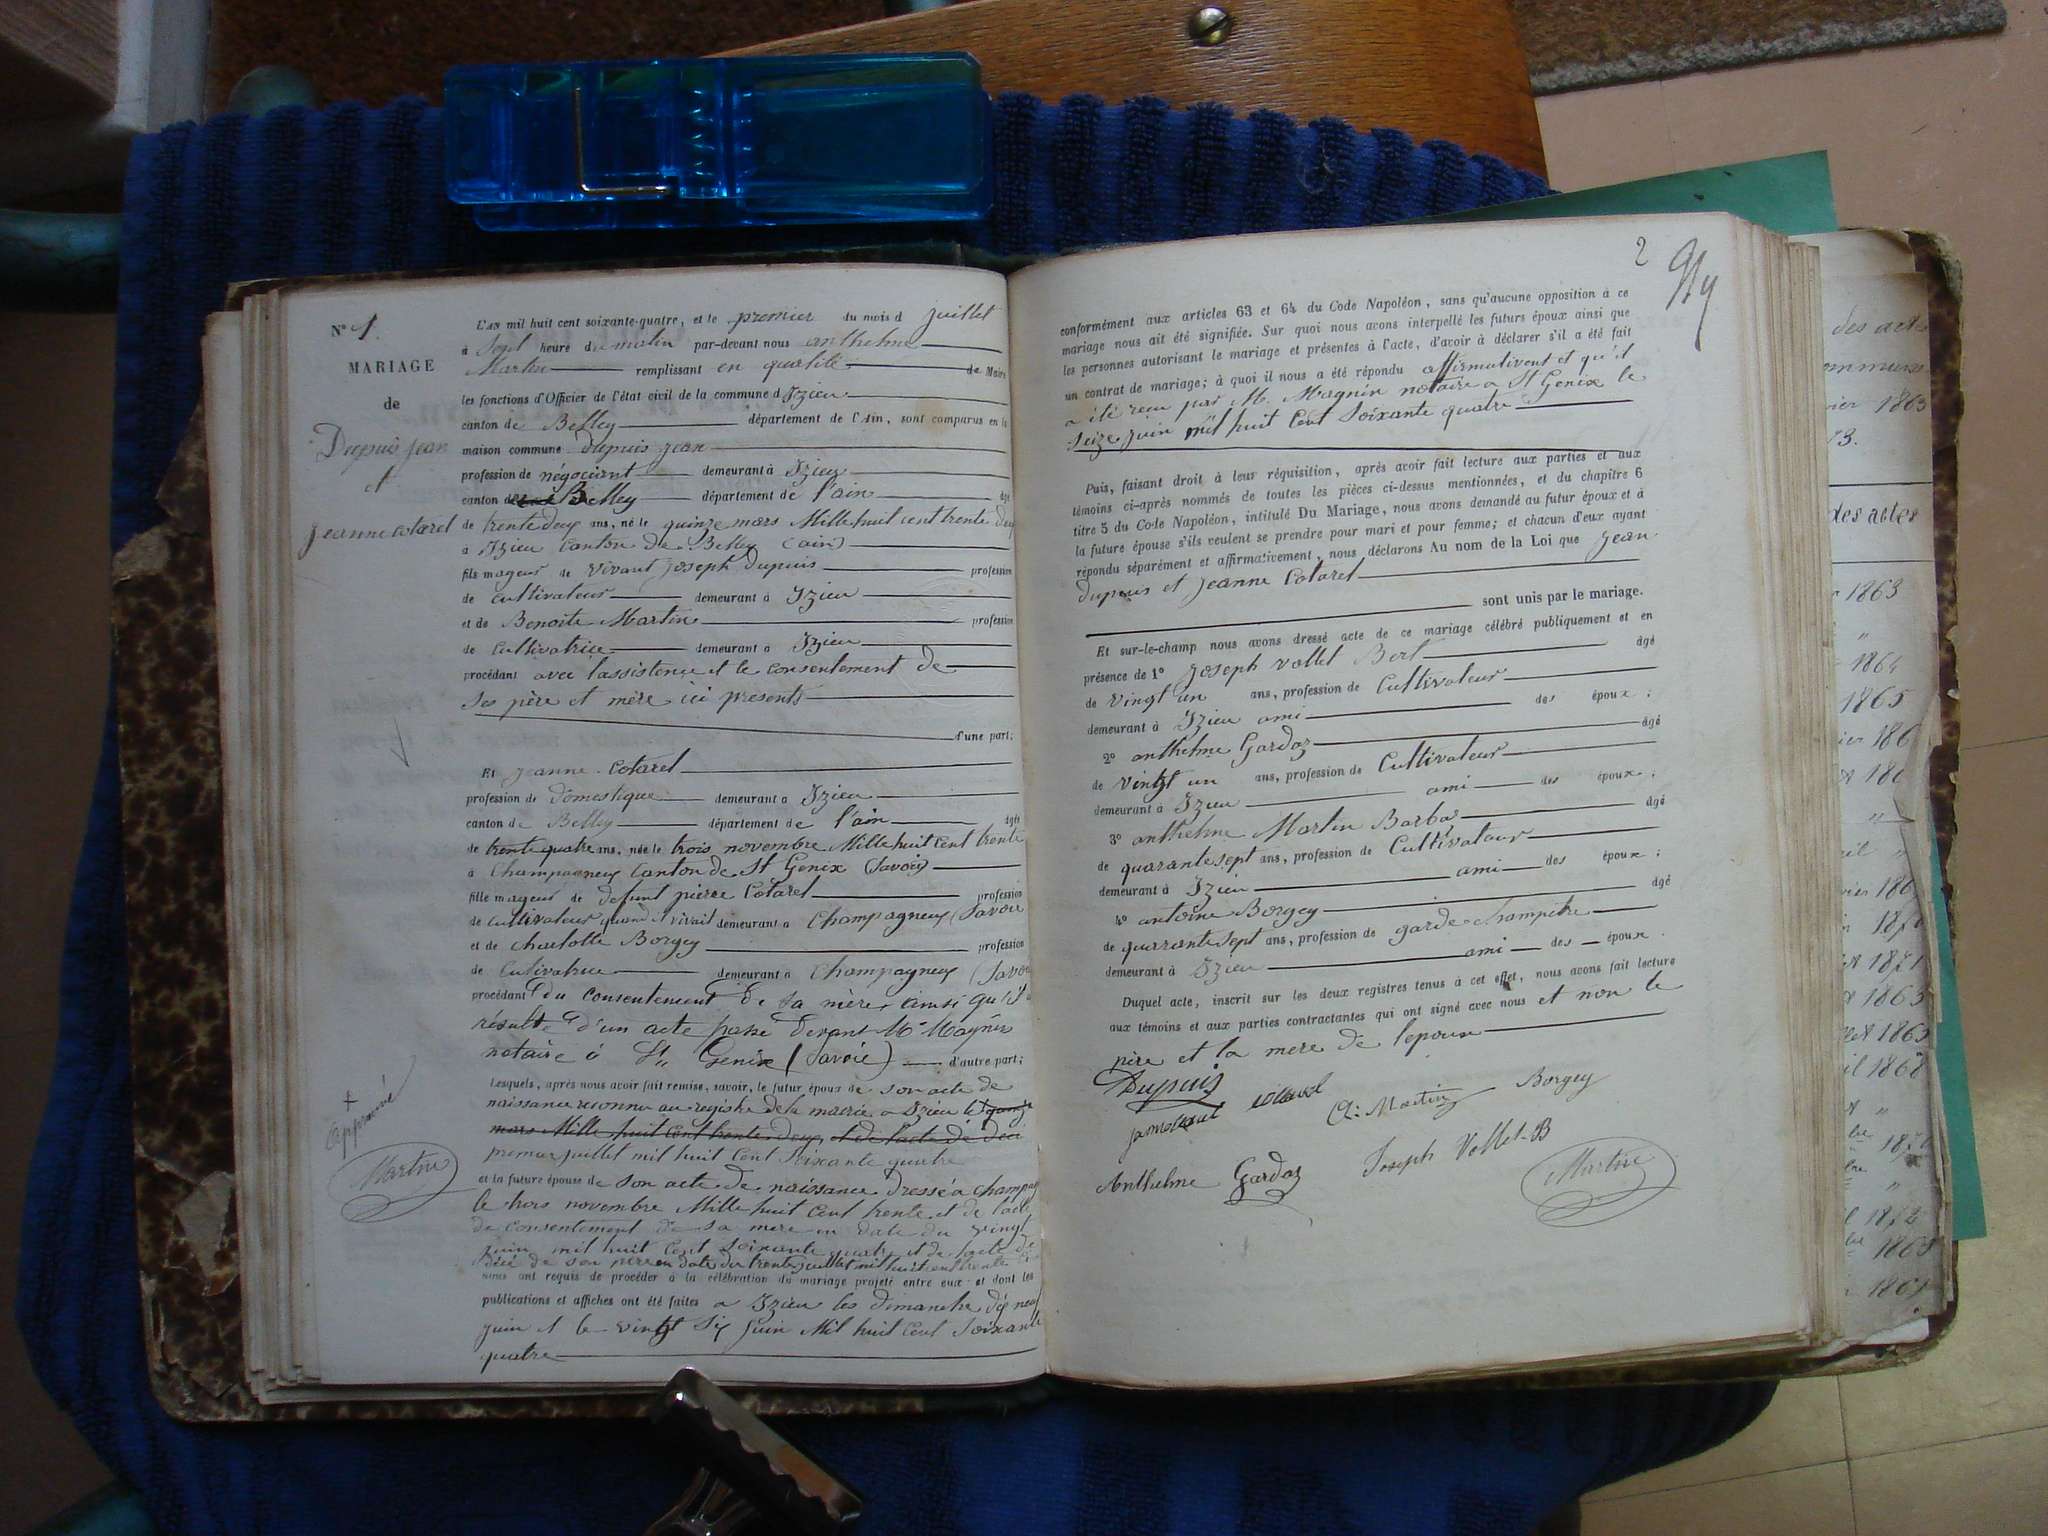 N° 1.
MARIAGE
de
Dupuis Jean
et
Jeanne Cotarel
L'AN mil huit cent soixante-quatre, et le premier du mois d juillet
à Sept heure du matin par-devant nous anthelme
Martin remplissant en qualité de Maire
les fonctions d'Officier de l'état civil de la commune d'Izieu
canton de Belley département de l'Ain, sont comparus en la
maison commune Dupuis jean
profession de négociant demeurant à Izieu
canton de Belley département de l'ain âgé
de trente deux ans, né le quinze mars Mille huit cent trente deux
à Izieu Canton de Belley (ain)
fils majeur de vivant Joseph Dupuis profession
de cultivateur demeurant à Izieu
et de Benoite Martin profession
de Cultivatrice demeurant à Izieu
procédant avec l'assistence et le consentement de
ses père et mère ici présents
d'une part;
Et Jeanne Cotarel
profession de Domestique demeurant à Izieu
canton de Belley département de l'ain âgée
de trente quatre ans, née le trois novembre Mille huit Cent trente
à Champagneux Canton de St Genix (Savoie)
fille majeur de defunt pierre Cotarel profession
de cultivateur quand il vivait demeurant à Champagneux (Savoie
et de Charlotte Borgey profession
de Cultivatrice demeurant à Champagneux (Savoie
procédant du consentement de sa mère ainsi qu'il
résulte d'un acte passé devant Me Magnin
notaire à St Genix (Savoie) d'autre part;
Lesquels, après nous avoir fait remise, savoir, le futur époux de son acte de
naissance reconnu au registre de la mairie a Izieu le quinze
mars Mille huit Cent trente deux et de l'acte de
premier juillet mil huit Cent Soixante quatre
+
approuvé
Martin
et la future épouse de son acte de naissance dressé à Champag
le trois novembre Mille huit Cent trente et de l'acte
de consentement de sa mere en date du vingt
juin mil huit Cent Soixante quatre et de l'acte de
décé de son père en date du trente juillet mil huit cent trente
nous ont requis de procéder à la célébration du mariage projeté entre eux et dont les
publications et affiches ont été faites a Izieu les dimanche dix neuf
juin et le vingt Six Juin Mil huit Cent Soixante
quatre
2
conformément aux articles 63 et 64 du Code Napoléon, sans qu'aucune opposition à ce
mariage nous ait été signifiée. Sur quoi nous avons interpellé les futurs époux ainsi que
les personnes autorisant le mariage et présentes à l'acte, d'avoir à déclarer s'il a été fait
un contrat de mariage; à quoi il nous a été répondu affirmativent et qu'il
a été recu par M. Magnin notaire a St Genix le
Seize juin mil huit Cent Soixante quatre
Puis, faisant droit à leur réquisition, après avoir fait lecture aux parties et aux
témoins ci-après nommés de toutes les pièces ci-dessus mentionnées, et du chapitre 6
titre 5 du Code Napoléon, intitulé Du Mariage, nous avons demandé au futur époux et à
la future épouse s'ils veulent se prendre pour mari et pour femme; et chacun d'eux ayant
répondu séparément et affirmativement, nous déclarons Au nom de la Loi que Jean
dupuis et Jeanne Cotarel
sont unis par le mariage.
Et sur-le-champ nous avons dressé acte de ce mariage célébré publiquement et en
présence de 1° Joseph Vollet Bert âgé
de vingt un ans, profession de Cultivateur
demeurant à Izieu ami des époux;
2° anthelme Gardaz âgé
de vingt un ans, profession de Cultivateur
demeurant à Izieu ami des époux;
3° anthelme Martin Barbaz âgé
de quarante sept ans, profession de Cultivateur
demeurant à Izieu ami des époux;
4° antoine Borgey âgé
de quarante sept ans, profession de garde champêtre
demeurant à Izieu ami des époux.
Duquel acte, inscrit sur les deux registres tenus à cet effet, nous avons fait lecture
aux témoins et aux parties contractantes qui ont signé avec nous et non le
père et la mere de l'epoux
Dupuis
cotarel A: Martin Borgey
Anthelme Gardaz Joseph Vollet-B
Martin
des acte
ommune
vier 1863
73.
des actes
1863
"
1864
1865
1868
"
1871
1863
1865
1868
"
"
1872
1865